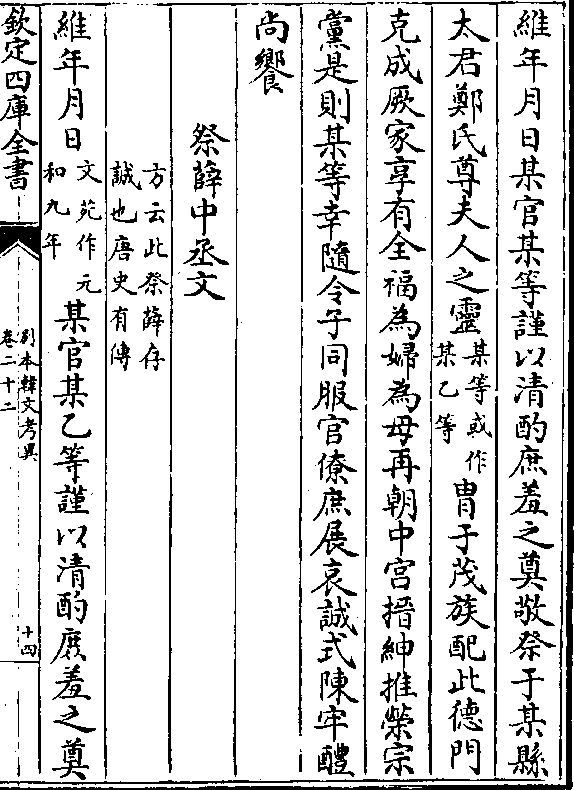 維年月日某官某等謹以清酌庶羞之奠敬祭于某縣
太君鄭氏尊夫人之靈某等或作某乙等胄于茂族配此德門
克成厥家享有全福為婦為母再朝中宫搢紳推榮宗
黨是則某等幸隨令子同服官僚庶展哀誠式陳牢醴
尚饗
祭薛中丞文
方云此祭薛存誠也唐史有傳
維年月日文苑作元和九年某官某乙等謹以清酌庶羞之奠
欽定四庫全書
别本韓文考異
卷二十二
十四